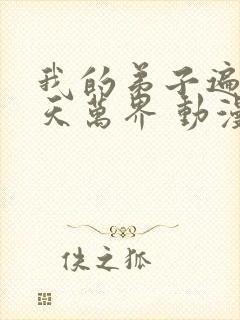 我的弟子遍
天萬界 動漫
佚之狐